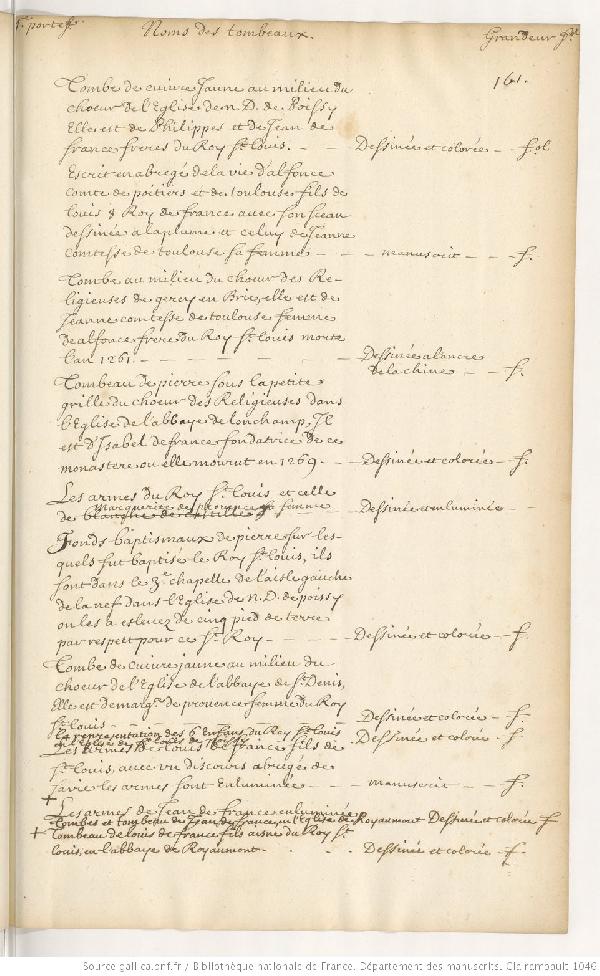 1er portef. Noms des tombeaux. Grandeur
161.
Tombe de cuivre Jaune au milieu du
choeur de l'Eglise de n. D. de Poissy
Elle est de Philippes et de Jean de
france freres du Roy St. Louis. - - Dessinée et colorée - f. ol
Escrit en abregé de la vie d'alfonce
Comte de poitiers et de toulouse fils de
Louis 8 Roy de france avec son sceau
dessinée a la plume et celuy de Jeanne
comtesse de toulouse sa femme - - - manuscrit - - - f.
Tombe au milieu du choeur des Re-
ligieuses de gercy en Brie, elle est de
Jeanne comtesse de toulouse femme
de alfonce frere du Roy St. Louis morte
l'an 1261. - - - - - - Dessinée a l'ancre
de la chine - - f.
Tombeau de pierre sous la petite
grille du choeur des Religieuses dans
l'Eglise de l'abbaye de lonchamp. Il
est d'Isabel de france fondatrice de ce
monastere ou elle mourut en 1269. - - Dessinée et colorée - f.
Les armes du Roy St. Louis et celle
Marguerite de provence sa femme
de blanche de castille - Dessinée et enluminée - -
Fonds baptismaux de pierre sur les-
quels fut baptisé le Roy St. Louis, ils
sont dans le 3e. chapelle de l'aisle gauche
de la nef dans l'Eglise de n. D. de poissy
on les a eslevez de cinq pied de terre
par respect pour ce St. Roy - - - - Dessinée et colorée - f.
Tombe de cuivre jaune au milieu du
choeur de l'Eglise de l'abbaye de St. Denis,
Elle est de margte. de provence femme du Roy
St. Louis - - - - - Dessinée et colorée - f.
La representation des 6 Enfans du Roy St. Louis
en l'Eglise de St. Louis de Poissy - Dessinée et colorée - f.
Les armes de Louis de france fils de
St. Louis, avec un discours abregé de
sa vie les armes sont Enluminée - - manuscrit - - f.
+ Les armes de Jean de france enluminée
Tombes et tombeau de Jean de france, en l'Eglise de Royaumont Dessinée et colorée f
+ Tombeau de louis de france fils aisné du Roy St.
louis, en l'abbaye de Royaumont. - - - Dessinée et colorée - f.
Source gallica.bnf.fr / Bibliothèque nationale de France. Département des manuscrits. Clairambault 1046